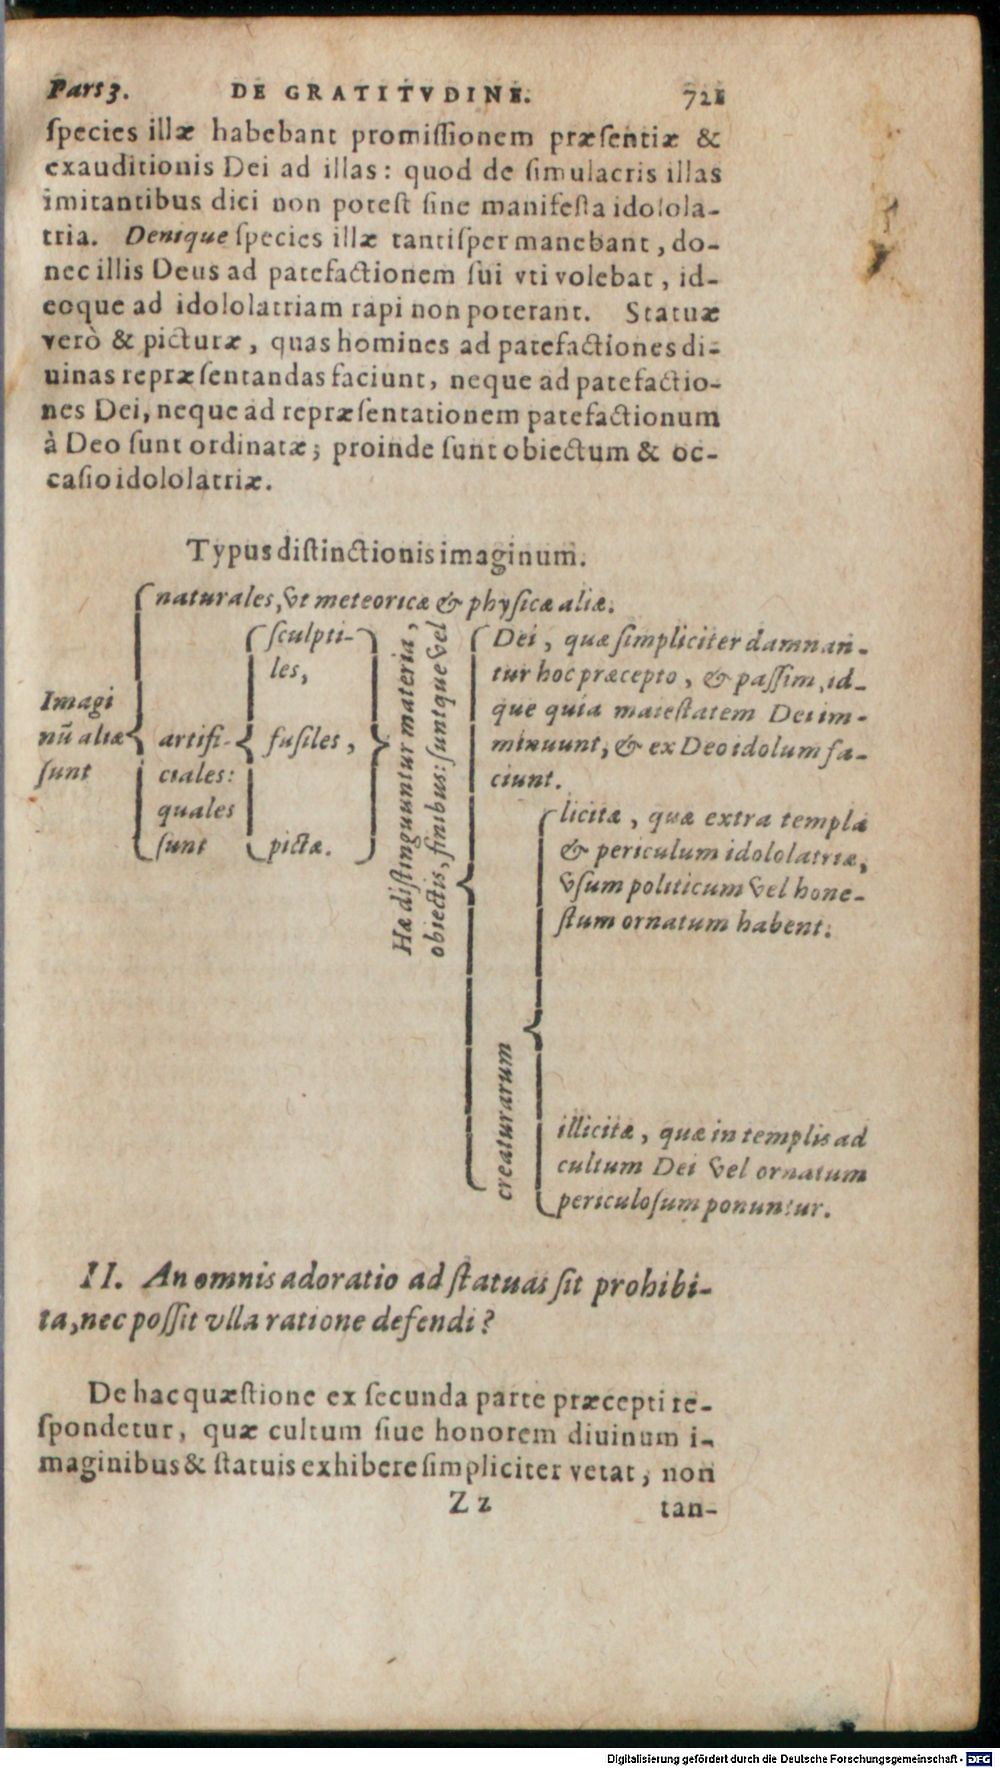 Part 3. DE GRATITVDINE. 721
ſpecies illæ habebant promiſſionem præſentiæ &
exauditionis Dei ad illas: quod de ſimulacris illas
imitantibus dici non poteſt ſine manifeſta idolola-
tria. Denique ſpecies illæ tantiſper manebant, do-
nec illis Deus ad patefactionem ſui vti volebat, id-
eoque ad idololatriam rapi non poterant. Statuæ
verò & picturæ, quas homines ad patefactiones di-
uinas repræſentandas faciunt, neque ad patefactio-
nes Dei, neque ad repræſentationem patefactionum
à Deo ſunt ordinatæ; proinde ſunt obiectum & oc-
caſio idololatriæ.
Typus diſtinctionis imaginum.
Imagi
nũ aliæ
ſunt
naturales, vt meteoricæ & phyſicæ aliæ.
artifi-
ciales:
quales
ſunt
ſculpti-
les,
fuſiles,
pictæ.
Hæ diſtinguuntur materia,
obiectis, finibus: ſuntque vel
Dei, quæ ſimpliciter damnan-
tur hoc præcepto, & paſſim, id-
que quia maieſtatem Dei im-
minuunt, & ex Deo idolum fa-
ciunt.
creaturarum
licitæ, quæ extra templa
& periculum idololatriæ,
vſum politicum vel hone-
ſtum ornatum habent.
illicitæ, quæ in templis ad
cultum Dei vel ornatum
periculoſum ponuntur.
II. An omnis adoratio ad ſtatuas ſit prohibi-
ta, nec poſſit vlla ratione defendi?
De hac quæſtione ex ſecunda parte præcepti re-
ſpondetur, quæ cultum ſiue honorem diuinum i-
maginibus & ſtatuis exhibere ſimpliciter vetat, non
Z z tan-
Digitalisierung gefördert durch die Deutsche Forschungsgemeinschaft - DFG